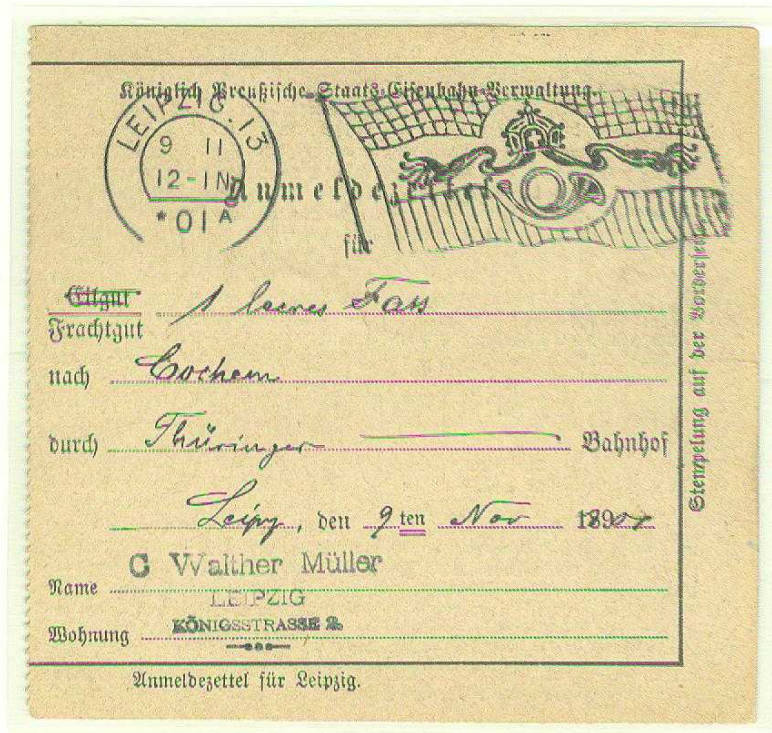 Königlich Preußische Staats-Eisenbahn-Verwaltung.
LEIPZIG. 13
9 11
12-1N
*01A
Anmeldezettel
für
Eilgut
Frachtgut 1 leeres Fass
nach Cochem
durch Thüringer Bahnhof
Leipz, den 9ten Nov 1901
C Walther Müller
Name
LEIPZIG
Wohnung KÖNIGSSTRASSE 2.
Anmeldezettel für Leipzig.
Stempelung auf der Vorderseite